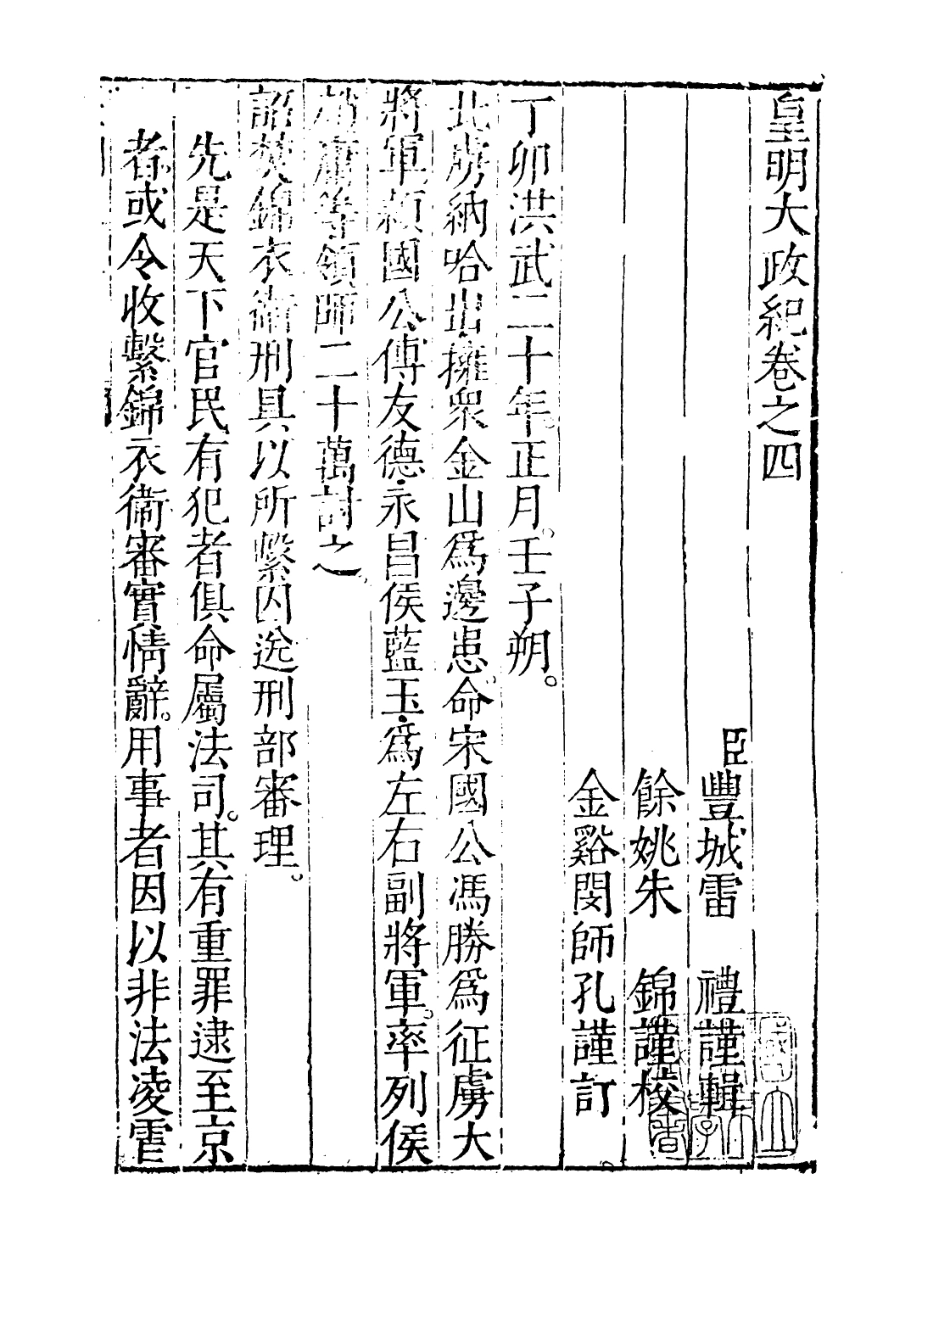 皇明大政紀卷之四
臣豐城雷　禮謹輯
餘姚朱　錦謹校
金谿閔師孔謹訂
丁卯洪武二十年。正月。壬子朔。
北虜納哈出擁衆金山爲邊患。命宋國公馮勝爲征虜大
將軍。潁國公傅友德永昌侯藍玉爲左右副將軍。率列侯
趙庸等領師二十萬討之。
詔焚錦衣衛刑具以所繫囚送刑部審理。
先是天下官民有犯者俱命屬法司。其有重罪逮至京
者。或令收繫錦衣衛審實情辭。用事者因以非法凌雪